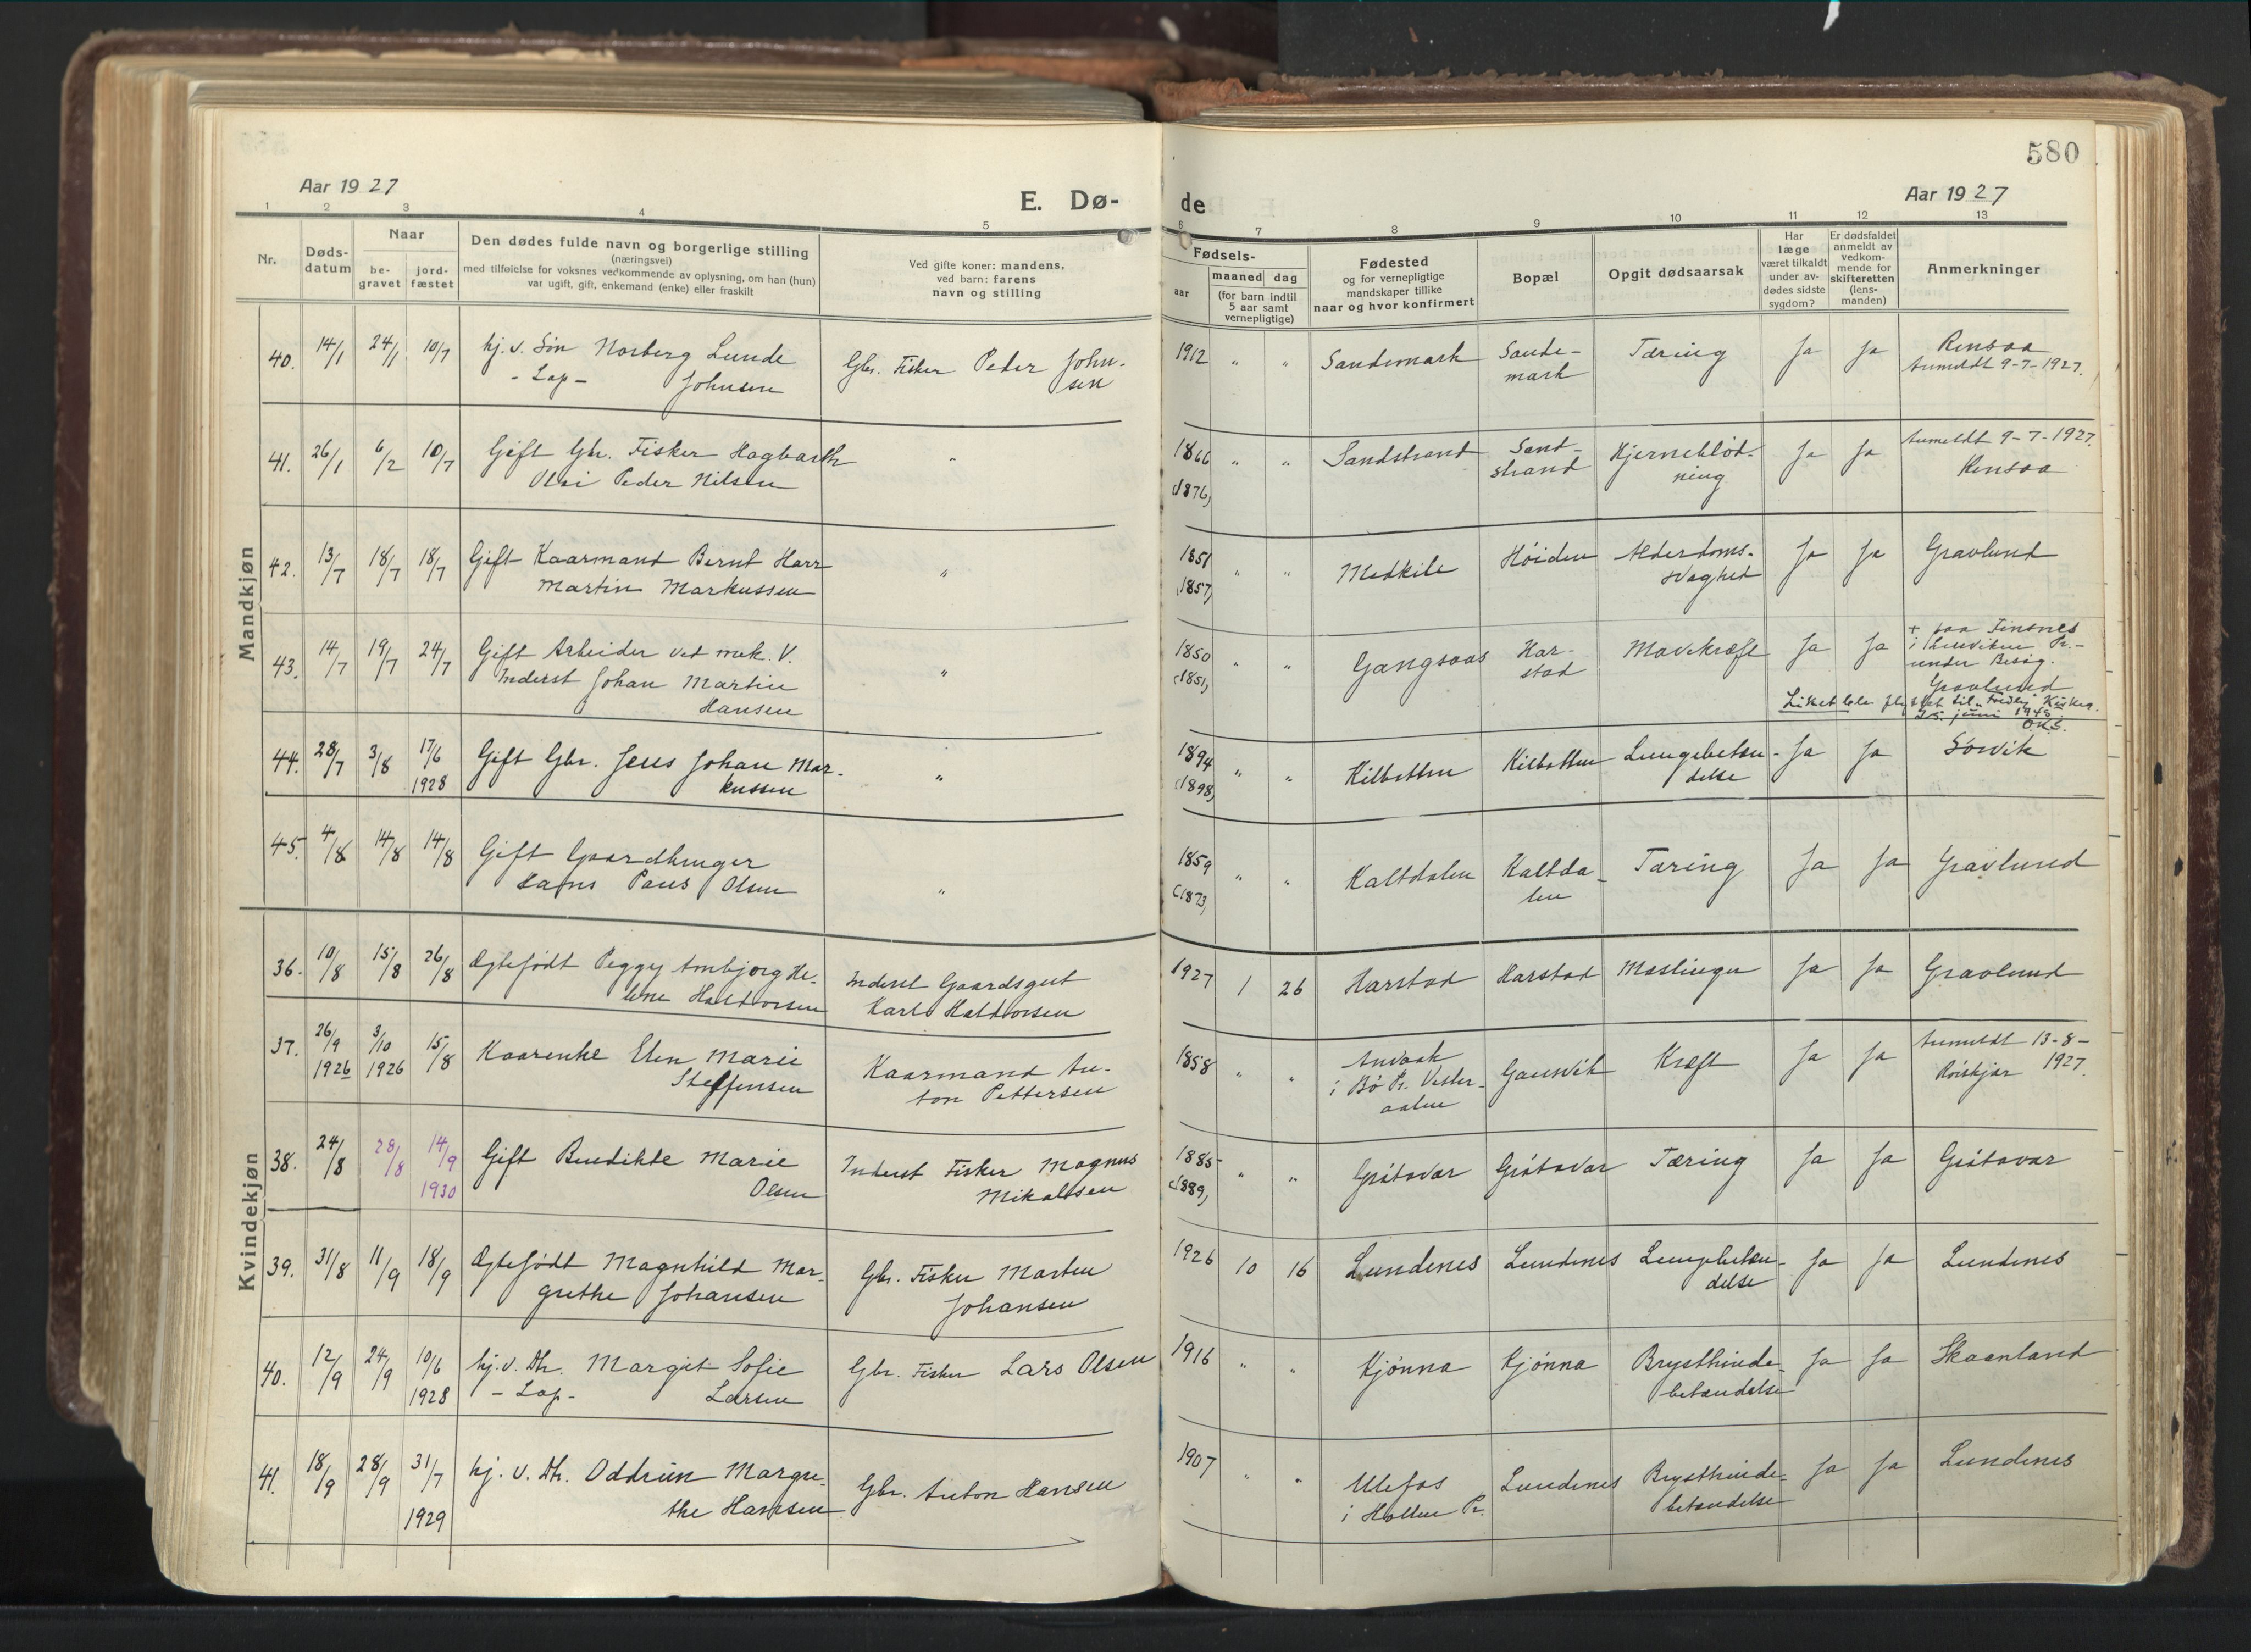 580
Aar 1927
E. Dø-
de
Aar 1927
1 2 3 4 5 6 7 8 9 10 11 12 13
Nr.
Døds-
datum
Naar
be-
gravet
jord-
fæstet
Den dødes fulde navn og borgerlige stilling
(næringsvei)
med tilføielse for voksnes vedkommende av oplysning, om han (hun)
var ugift, gift, enkemand (enke) eller fraskilt
Ved gifte koner: mandens,
ved barn: farens
navn og stilling
Fødsels-
aar
maaned dag
(for barn indtil
5 aar samt
vernepligtige)
Fødested
og for vernepligtige
mandskaper tillike
naar og hvor konfirmert
Bopæl
Opgit dødsaarsak
Har
læge
været tilkaldt
under av-
dødes sidste
sygdom?
Er dødsfaldet
anmeldt av
vedkom-
mende for
skifteretten
(lens-
manden)
Anmerkninger
Mandkjøn
40. 14/1 24/1 10/7 hj. v. Søn Norberg Lunde
- Lap - Johnsen
Gbr. Fisker Peder John-
sen
1912 " " Sandemark Sande-
mark
Tæring Ja Ja Rensaa
Anmeldt 9-7-1927.
41. 26/1 6/2 10/7 Gift Gbr. Fisker Hagbarth
Olai Peder Nilsen
"
1866 " " Sandstrand Sand-
strand
(1876) Hjerneblød-
ning
Ja Ja Anmeldt 9-7-1927.
Rensaa
42. 13/7 18/7 18/7 Gift Kaarmand Bernt
Martin Markussen
"
1851 " " Medkile Høiden Alderdoms-
svaghet
(1857)
Ja Ja Gravlund
43. 14/7 19/7 24/7 Gift Arbeider ved mek. V.
Inderst Johan Martin
Hansen
"
1850 " " Gangsaas Har-
stad
(1851)
Mavekræft Ja Ja + paa Finsnes
i Lenviken Pr.-
under Besøg.
Gravlund
Liket ble flyttet til
25. juni 1948.
O.K.S.
44. 28/7 3/8 17/6
1928
Gift Gbr. Jens Johan Mar-
kussen
"
1894 " " Kilbotten Kilbotten Lungebetæn-
delse
(1898)
Ja Ja Sørvik
45. 4/8 14/8 14/8 Gift Gaardbruger
Hans Paus Olsen
"
1859 " " Kaltdalen Kaltda-
len
(1873)
Tæring Ja Ja Gravlund
Kvindekjøn
36. 10/8 15/8 26/8 Ægtefødt Peggy Annbjørg He-
lene Haldorsen
Inderst Gaardsgut
Karl Haldorsen
1927 1 26 Harstad Harstad Mæslinger Ja Ja Gravlund
37. 26/9
1926
3/10
1926
15/8 Kaarenke Elen Marie
Steffensen
Kaarmand An-
ton Pettersen
1858 " "
i Bø Pr. Vester-
aalen
Gausvik Kræft Ja Ja Anmeldt 13-8-
1927.
Røiskjær
38. 24/8 28/8 14/9
1930
Gift Benedikte Marie
Olsen
Inderst Fisker Magnus
Mikalsen
1885 " " Grøtavær Grøtavær Tæring Ja Ja Grøtavær
(1889)
39. 31/8 11/9 18/9 Ægtefødt Magnhild Mar-
grethe Johansen
Gbr. Fisker Morten
Johansen
1926 10 16 Lundenes Lundenes Lungebetæn-
delse
Ja Ja Lundenes
40. 12/9 24/9 10/6
1928
hj. v. Dtr. Margit Sofie
- Lap - Larsen
Gbr. Fisker Lars Olsen
1916 " " Kjønna Kjønna Brysthinde-
betændelse
Ja Ja Skaanland
41. 18/9 28/9 31/7
1929
hj. v. Dtr. Oddrun Margre-
the Hansen
Gbr. Anton Hansen
1907 " " Ulefos
i Hollen Pr.
Lundenes Brysthinde-
betændelse
Ja Ja Lundenes